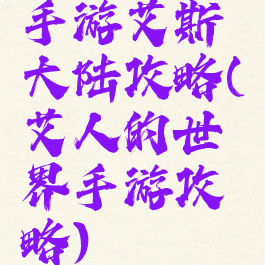 手游艾斯
大陆攻略(
艾人的世
界手游攻
略)